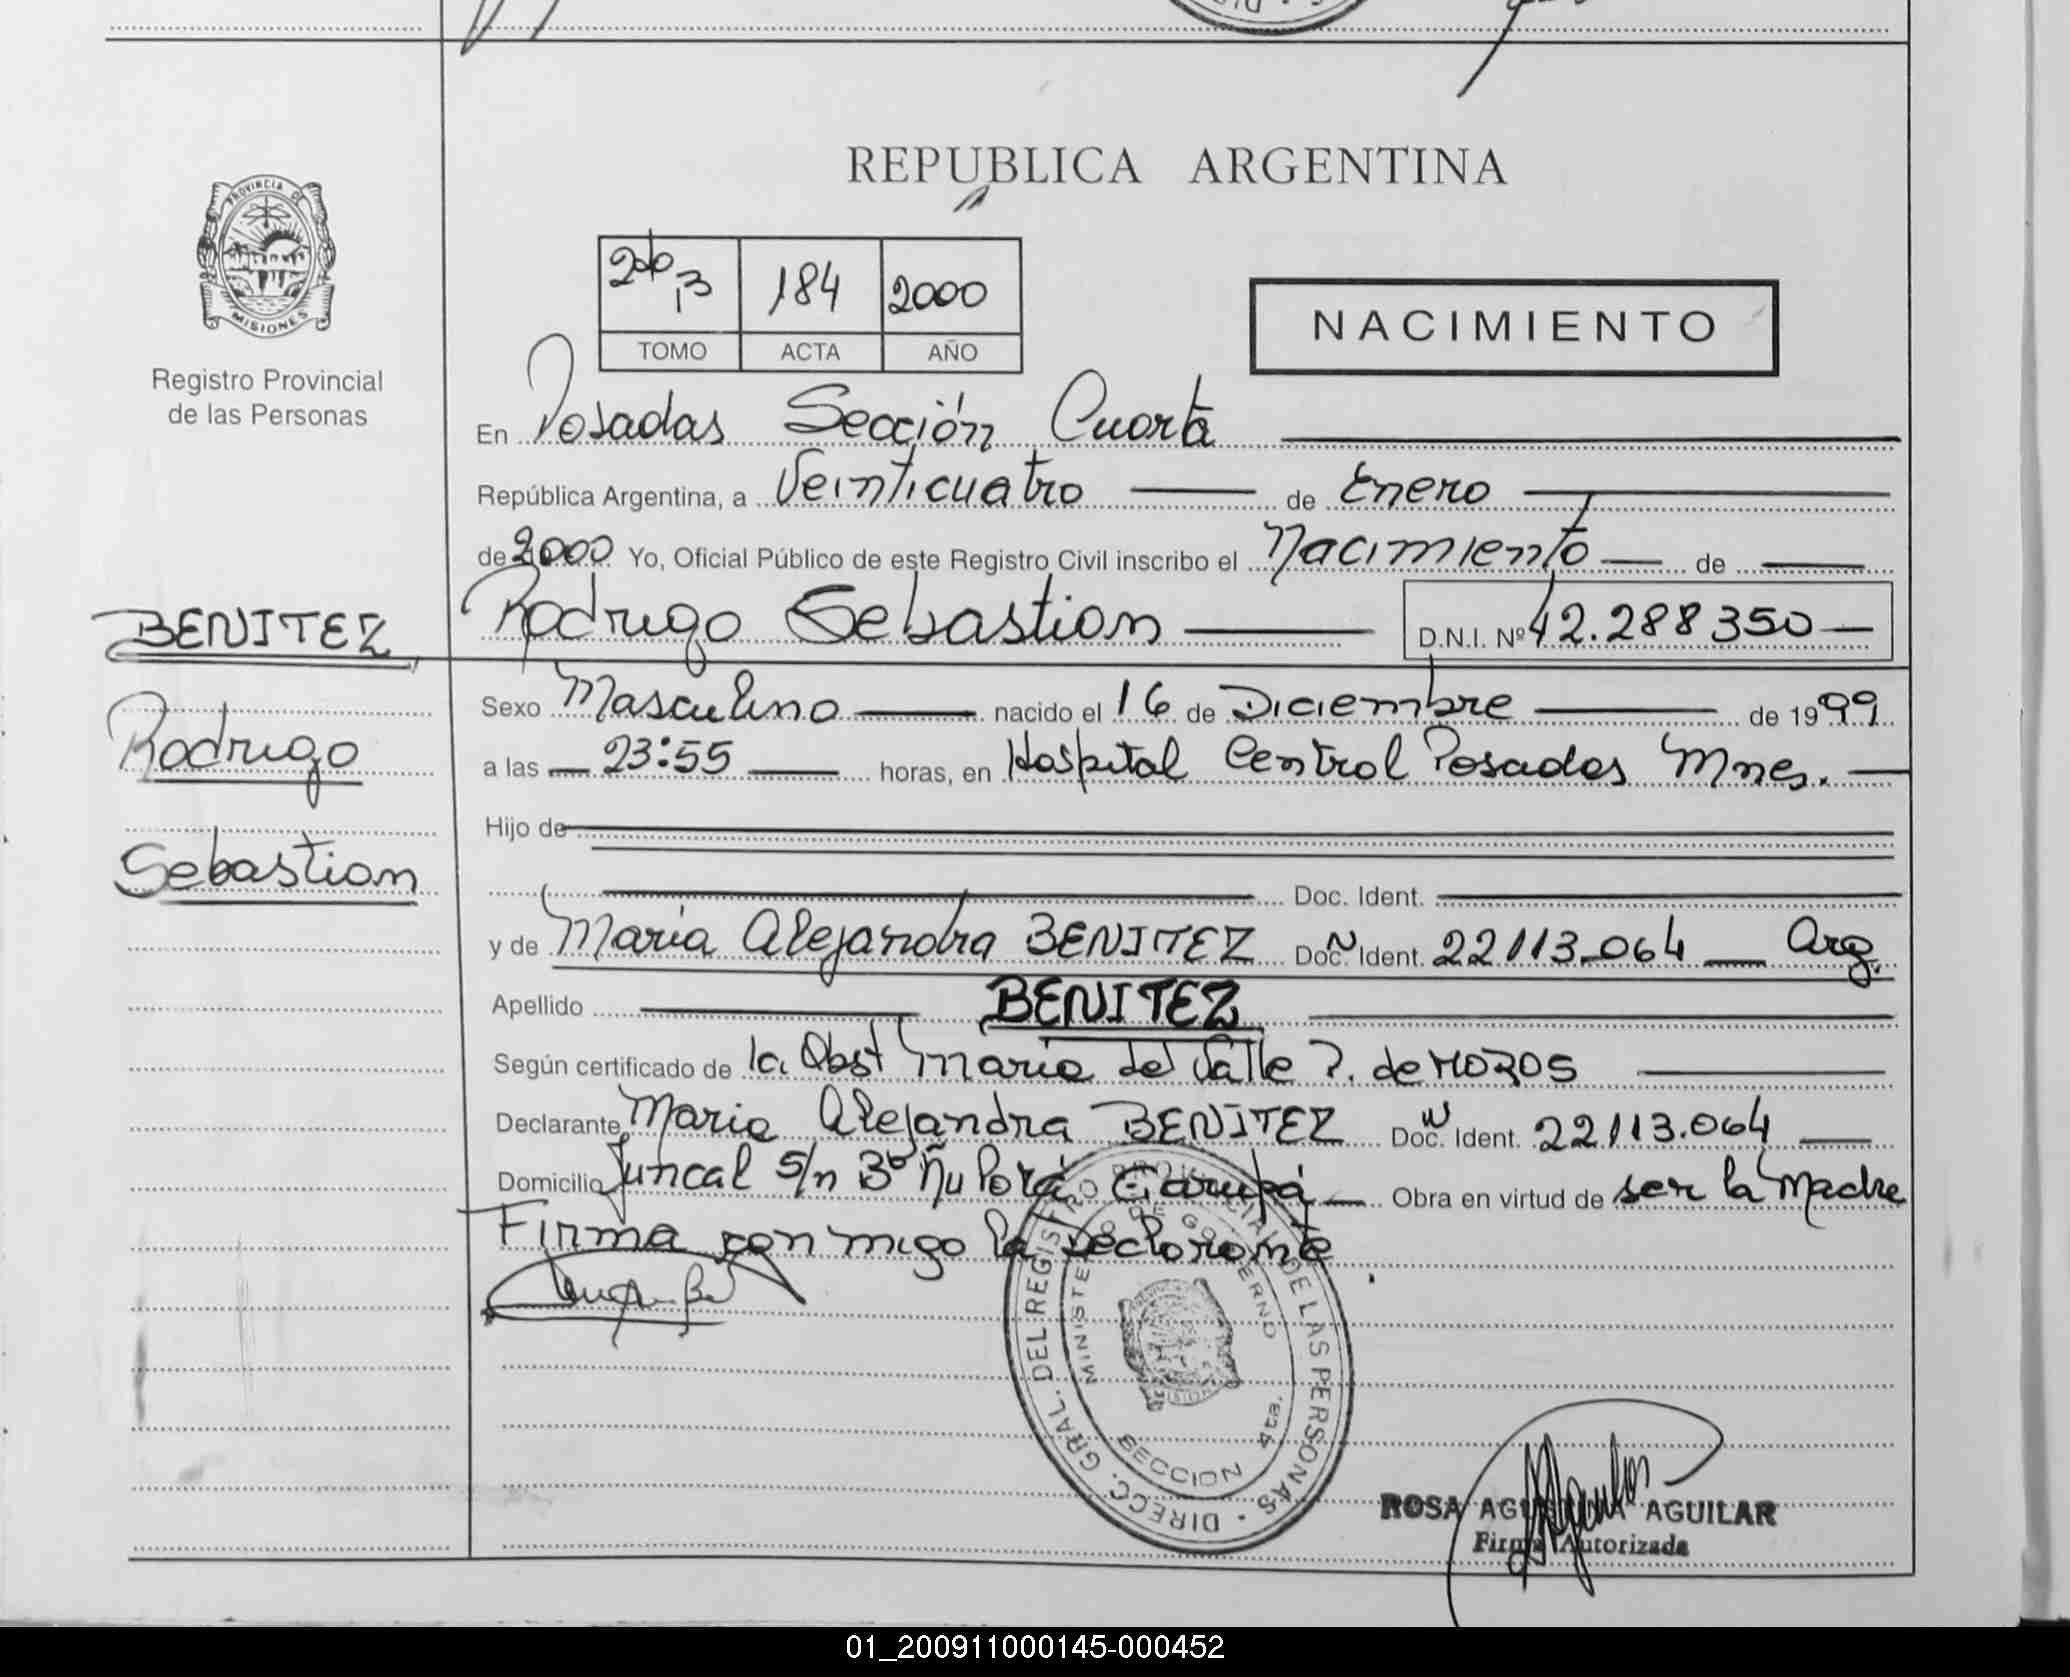 REPUBLICA ARGENTINA
PROVINCIA DE
MISIONES
Registro Provincial
de las Personas
184 2000
TOMO ACTA AÑO
NACIMIENTO
En Posadas Sección Cuarta
República Argentina, a Veinticuatro de Enero
de 2000 Yo, Oficial Público de este Registro Civil inscribo el Nacimiento de
BENITEZ Rodrigo Sebastian D.N.I. Nº 42.288350
Sexo Masculino nacido el 16 de Diciembre de 1999
Rodrigo
a las 23:55 horas, en Hospital Central Posadas Mnes.
Hijo de
Sebastian
Doc. Ident.
y de Maria Alejandra BENITEZ Doc. Ident. 22113.064 Arg.
Apellido BENITEZ
Según certificado de la Obst Maria del Valle P. de MOZOS
Declarante Maria Alejandra BENITEZ Doc. Ident. 22113.064
Domicilio Juncal S/n Bº Ñu Porá Garupá Obra en virtud de ser la Madre
Firma con migo la Declarante
DIRECC. GRAL. DEL REGISTRO PROVINCIAL DE LAS PERSONAS
MINISTERIO DE GOBIERNO
SECCION 4ta.
ROSA AGUSTINA AGUILAR
Firma Autorizada
01_200911000145-000452